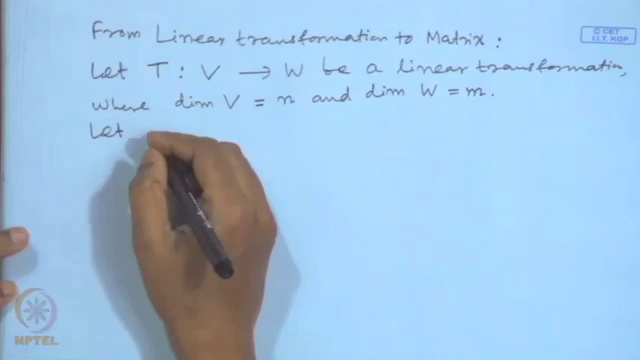 © CET
I.I.T. KGP
From Linear transformation to Matrix :
Let T : V → W be a linear transformation,
where dim V = n and dim W = m.
Let
NPTEL